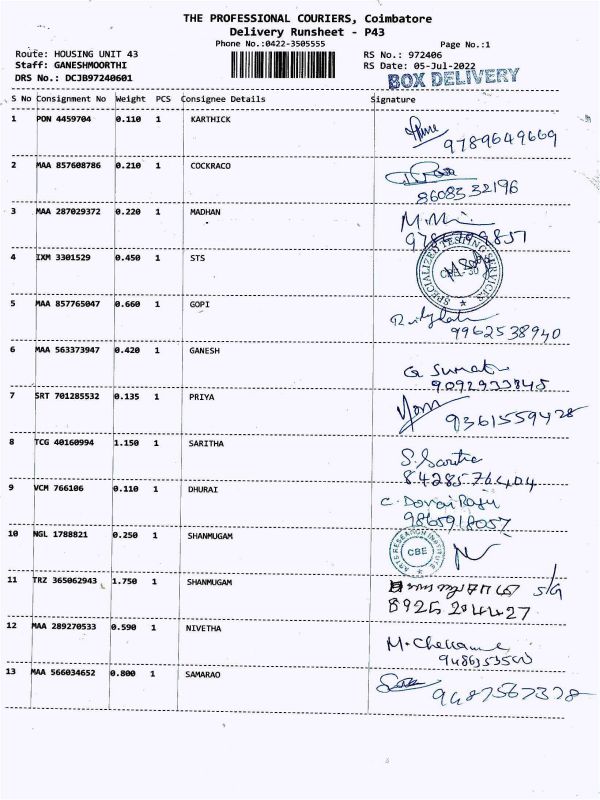 THE PROFESSIONAL COURIERS, Coimbatore
Delivery Runsheet - P43
Phone No.:0422-3505555
Page No.:1
Route: HOUSING UNIT 43
RS No.: 972406
Staff: GANESHMOORTHI
RS Date: 05-Jul-2022
DRS No.: DCJB97240601
BOX DELIVERY
S No Consignment No Weight PCS Consignee Details Signature
1 PON 4459704 0.110 1 KARTHICK
9789649669
2 MAA 857608786 0.210 1 COCKRACO
8608332196
3 MAA 287029372 0.220 1 MADHAN
4 IXM 3301529 0.450 1 STS
SPECIALIZED TESTING SERVICES
5 MAA 857765047 0.660 1 GOPI
9962538940
6 MAA 563373947 0.420 1 GANESH
9092933845
7 SRT 701285532 0.135 1 PRIYA
9361559428
8 TCG 40160994 1.150 1 SARITHA
S. Saritha
8428576404
9 VCM 766106 0.110 1 DHURAI
C. Dorai Raju
9865918057
10 NGL 1788821 0.250 1 SHANMUGAM
ARTS RESEARCH INSTITUTE
CBE
11 TRZ 365062943 1.750 1 SHANMUGAM
S/G
8925204427
12 MAA 289270533 0.590 1 NIVETHA
9486353500
13 MAA 566034652 0.800 1 SAMARAO
9487567378